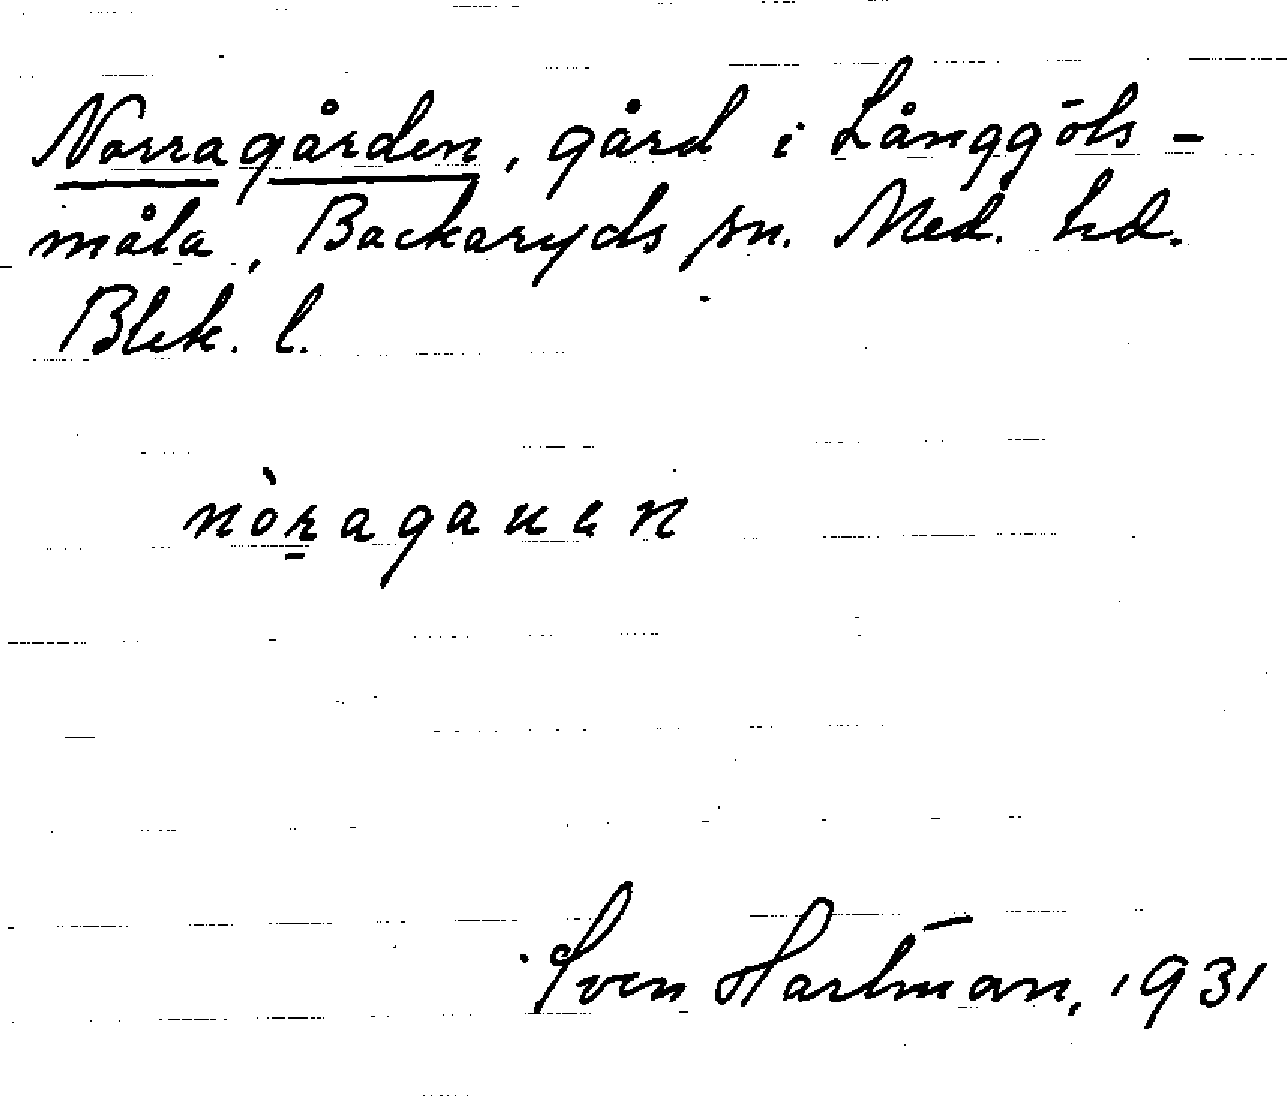 Norragården, gård i Långgöls-
måla, Backaryds sn. Med. hd.
Blek. l.
nòṟagaꭒen
Sven Hartman, 1931